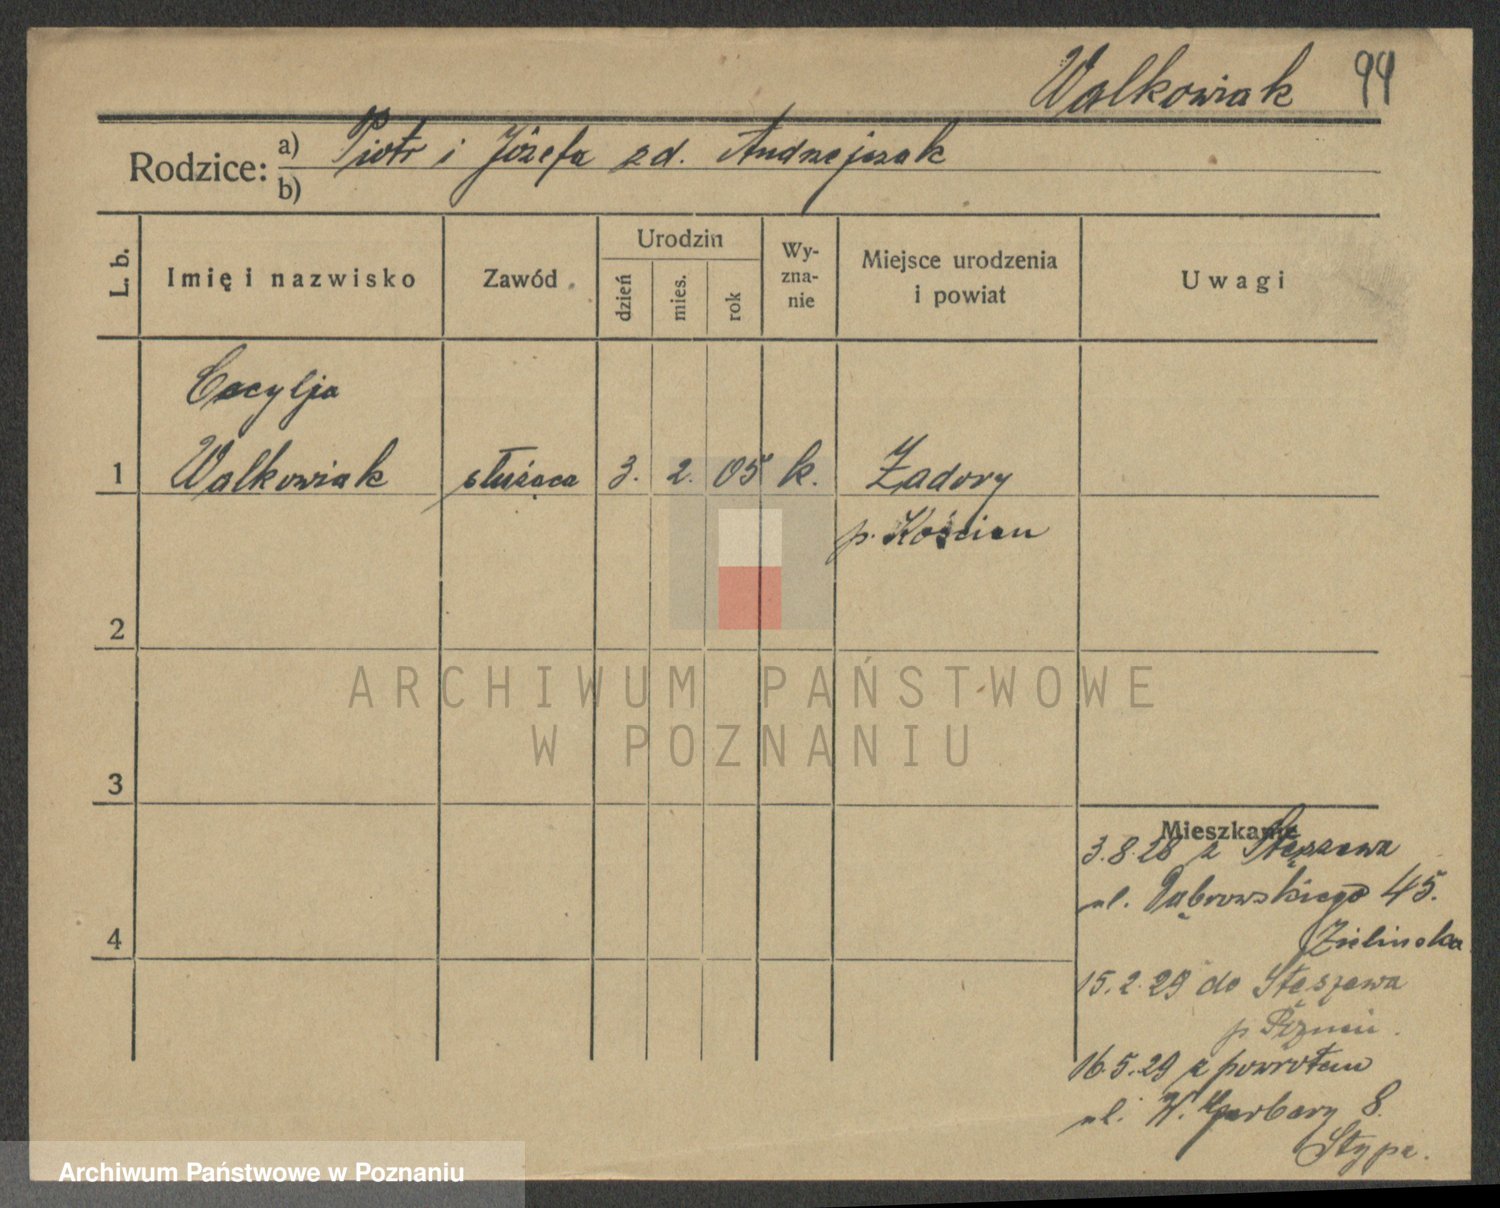 Walkowiak 94
Rodzice: a) Piotr i Józefa zd. Andrzejczak
b)
L. b. Imię i nazwisko Zawód Urodzin dzień mies. rok Wyznanie Miejsce urodzenia i powiat Uwagi
Cecylja
1 Walkowiak służąca 3. 2. 05 k. Zadory
p. Kościan
2
ARCHIWUM PAŃSTWOWE
W POZNANIU
3
Mieszkanie
3.8.28 z Stęszewa
ul. Dąbrowskiego 45.
4
Zielińska
15.2.29 do Stęszewa
p. Poznań.
16.5.29 z powrotem
ul. W. Garbary 8.
Stypa.
Archiwum Państwowe w Poznaniu